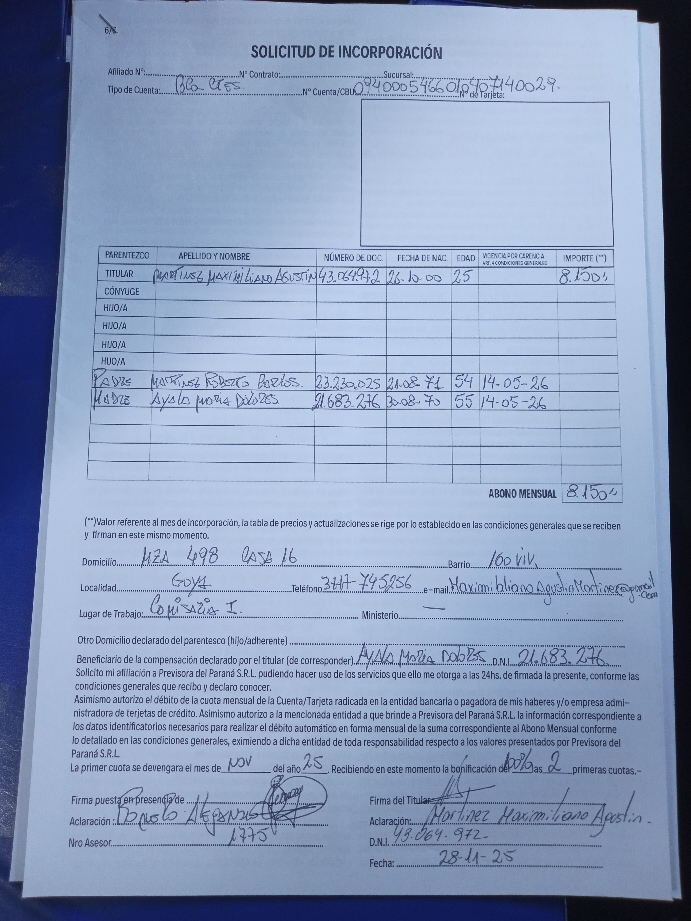 SOLICITUD DE INCORPORACIÓN
Afiliado Nº: Nº Contrato: Sucursal:
Tipo de Cuenta: Bco Ctes Nº Cuenta/CBU 0940005466010407140029. Nº de Tarjeta:
PARENTEZCO APELLIDO Y NOMBRE NÚMERO DE DOC. FECHA DE NAC. EDAD VIGENCIA POR CARENCIA ART. 4 CONDICIONES GENERALES IMPORTE (**)
TITULAR MARTINEZ MAXIMILIANO AGUSTIN 43.064.972 26.10.00 25 8.150
CONYUGE
HIJO/A
HIJO/A
HIJO/A
HIJO/A
PADRE MARTINEZ ROBERTO CARLOS. 23.230.025 21.08.71 54 14-05-26
MADRE AYALA MARIA DOLORES 21.683.276 30.08.70 55 14-05-26
ABONO MENSUAL 8.150
(**)Valor referente al mes de incorporación, la tabla de precios y actualizaciones se rige por lo establecido en las condiciones generales que se reciben
y firman en este mismo momento.
Domicilio MZA 498 CASA 16 Barrio 160 viv.
Localidad GOYA Teléfono 3777-745256 e-mail
Lugar de Trabajo: Comisaria I. Ministerio
Otro Domicilio declarado del parentesco (hijo/adherente)
Beneficiario de la compensación declarado por el titular (de corresponder) AYALA MARIA DOLORES D.N.I. 21.683.276
Solicito mi afiliación a Previsora del Paraná S.R.L. pudiendo hacer uso de los servicios que ello me otorga a las 24hs. de firmada la presente, conforme las
condiciones generales que recibo y declaro conocer.
Asimismo autorizo el débito de la cuota mensual de la Cuenta/Tarjeta radicada en la entidad bancaria o pagadora de mis haberes y/o empresa admi-
nistradora de terjetas de crédito. Asimismo autorizo a la mencionada entidad a que brinde a Previsora del Paraná S.R.L. la información correspondiente a
los datos identificatorios necesarios para realizar el débito automático en forma mensual de la suma correspondiente al Abono Mensual conforme
lo detallado en las condiciones generales, eximiendo a dicha entidad de toda responsabilidad respecto a los valores presentados por Previsora del
Paraná S.R.L
La primer cuota se devengara el mes de NOV del año 25. Recibiendo en este momento la bonificación de 100% las 2 primeras cuotas.-
Firma puesta en presencia de Firma del Titular
Aclaración: Aclaración: Martinez Maximiliano Agustin-
Nro Asesor 1775 D.N.I. 43.064.972-
Fecha: 28-11-25